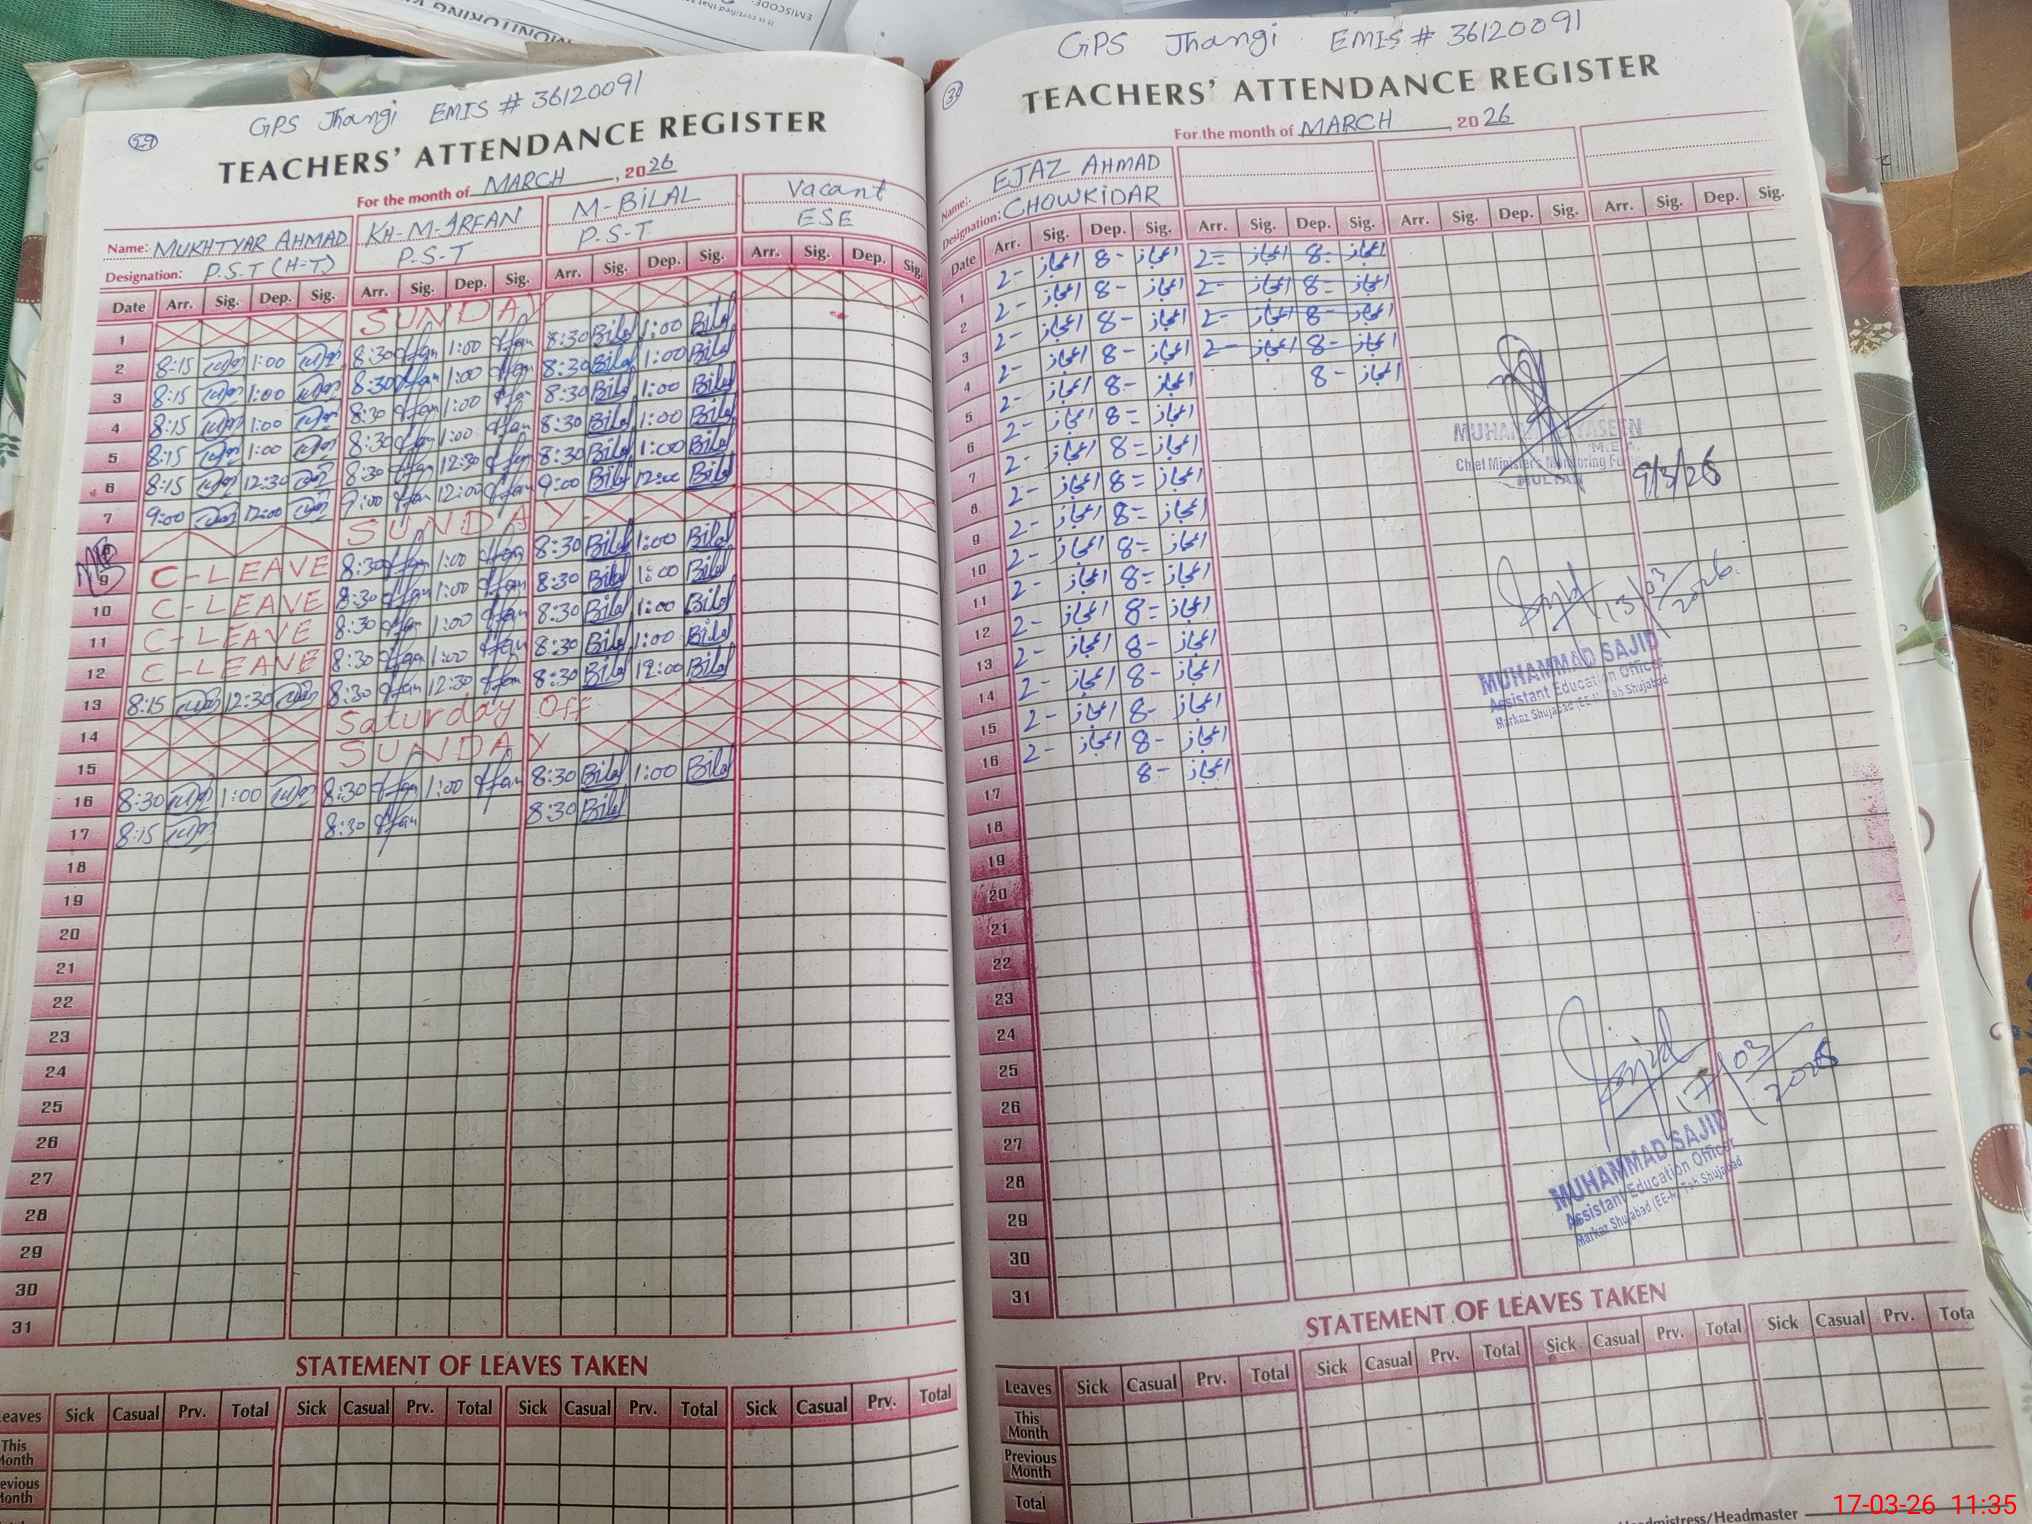 GPS Jhangi EMIS # 36120091
59
TEACHERS' ATTENDANCE REGISTER
For the month of MARCH, 2026
Name: MUKHTYAR AHMAD KH-M-IRFAN M-BILAL Vacant
Designation: P.S.T (H-T) P.S.T P.S.T ESE
Date Arr. Sig. Dep. Sig. Arr. Sig. Dep. Sig. Arr. Sig. Dep. Sig. Arr. Sig. Dep. Sig.
1 SUNDAY
2 8:15 1:00 8:30 Irfan 1:00 Irfan 8:30 Bilal 1:00 Bilal
3 8:15 1:00 8:30 Irfan 1:00 Irfan 8:30 Bilal 1:00 Bilal
4 8:15 1:00 8:30 Irfan 1:00 Irfan 8:30 Bilal 1:00 Bilal
5 8:15 1:00 8:30 Irfan 1:00 Irfan 8:30 Bilal 1:00 Bilal
6 8:15 12:30 8:30 Irfan 12:30 Irfan 8:30 Bilal 1:00 Bilal
7 9:00 12:00 9:00 Irfan 12:00 Irfan 9:00 Bilal 12:00 Bilal
8 SUNDAY
9 C-LEAVE 8:30 Irfan 1:00 Irfan 8:30 Bilal 1:00 Bilal
10 C-LEAVE 8:30 Irfan 1:00 Irfan 8:30 Bilal 1:00 Bilal
11 C-LEAVE 8:30 Irfan 1:00 Irfan 8:30 Bilal 1:00 Bilal
12 C-LEAVE 8:30 Irfan 1:00 Irfan 8:30 Bilal 1:00 Bilal
13 8:15 12:30 8:30 Irfan 12:30 Irfan 8:30 Bilal 12:00 Bilal
14 Saturday Off
15 SUNDAY
16 8:30 1:00 8:30 Irfan 1:00 Irfan 8:30 Bilal 1:00 Bilal
17 8:15 8:30 Irfan 8:30 Bilal
18
19
20
21
22
23
24
25
26
27
28
29
30
31
STATEMENT OF LEAVES TAKEN
Leaves Sick Casual Prv. Total Sick Casual Prv. Total Sick Casual Prv. Total Sick Casual Prv. Total
This Month
Previous Month
GPS Jhangi EMIS # 36120091
TEACHERS' ATTENDANCE REGISTER
For the month of MARCH, 2026
Name: EJAZ AHMAD
Designation: CHOWKIDAR
Date Arr. Sig. Dep. Sig. Arr. Sig. Dep. Sig. Arr. Sig. Dep. Sig. Arr. Sig. Dep. Sig.
1 2- اعجاز 8- اعجاز 2- اعجاز 8- اعجاز
2 2- اعجاز 8- اعجاز 2- اعجاز 8- اعجاز
3 2- اعجاز 8- اعجاز 2- اعجاز 8- اعجاز
4 2- اعجاز 8- اعجاز 2- اعجاز 8- اعجاز
5 2- اعجاز 8- اعجاز 8- اعجاز
6 2- اعجاز 8= اعجاز
7 2- اعجاز 8= اعجاز
8 2- اعجاز 8= اعجاز
9 2- اعجاز 8= اعجاز
10 2- اعجاز 8= اعجاز
11 2- اعجاز 8= اعجاز
12 2- اعجاز 8= اعجاز
13 2- اعجاز 8- اعجاز
14 2- اعجاز 8- اعجاز
15 2- اعجاز 8- اعجاز
16 2- اعجاز 8- اعجاز
17 8- اعجاز
18
19
20
21
22
23
24
25
26
27
28
29
30
31
MUHAMMAD YASEEN
M.E.A.
Chief Minister's Monitoring Force
MULTAN
9/3/26
Sajid 13/03/2026.
MUHAMMAD SAJID
Assistant Education Officer
Markaz Shujabad (EE-M) Teh Shujabad
Sajid 17/03/2026
MUHAMMAD SAJID
Assistant Education Officer
Markaz Shujabad (EE-M) Teh Shujabad
STATEMENT OF LEAVES TAKEN
Leaves Sick Casual Prv. Total Sick Casual Prv. Total Sick Casual Prv. Total Sick Casual Prv. Tota
This Month
Previous Month
Total
Headmistress/Headmaster
17-03-26 11:35